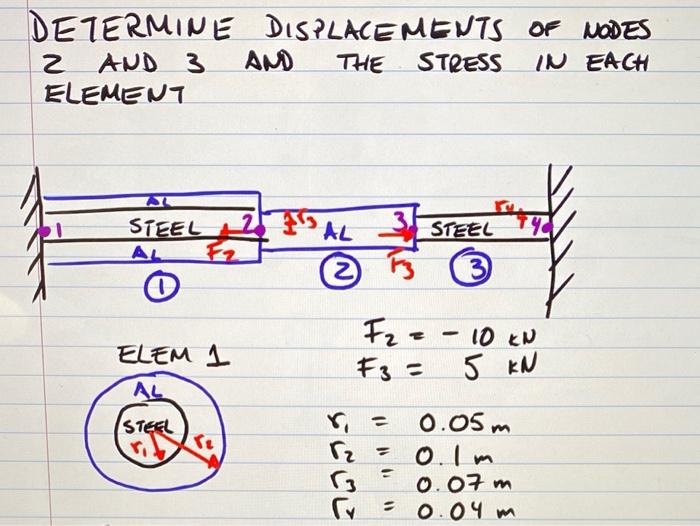 DETERMINE DISPLACEMENTS OF NODES
2 AND 3 AND THE STRESS IN EACH
ELEMENT
AL
1 STEEL 2 r3 AL 3 STEEL r4 4
AL F2 F3
1 2 3
ELEM 1
AL
STEEL
r1 r2
F2 = - 10 kN
F3 = 5 kN
r1 = 0.05 m
r2 = 0.1 m
r3 = 0.07 m
r4 = 0.04 m